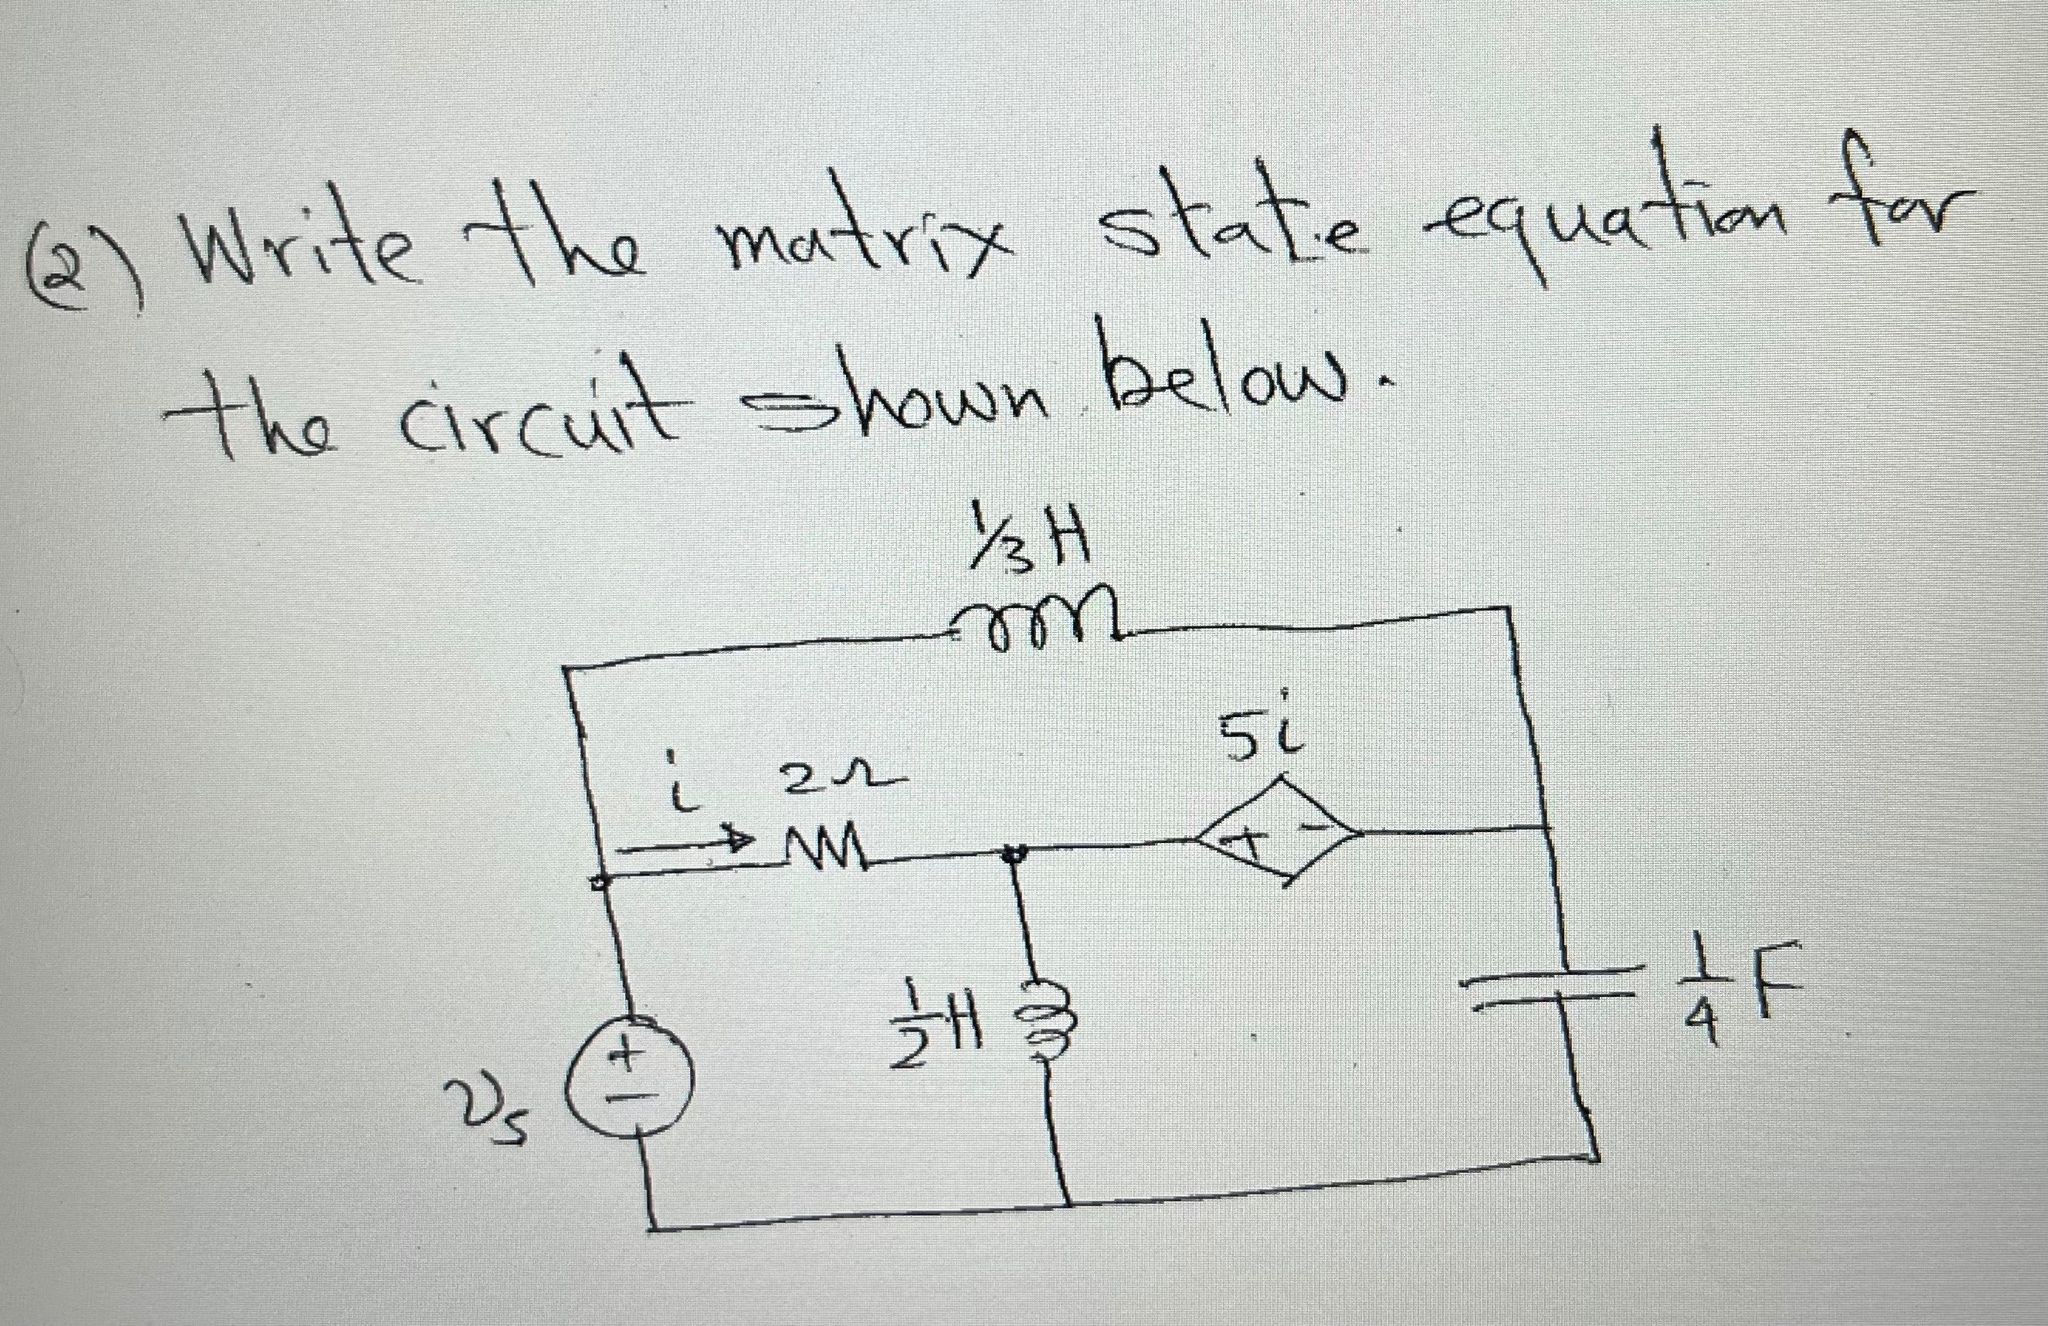 (2) Write the matrix state equation for
the circuit shown below.
⅓H
5i
i 2Ω
+ -
½H
¼F
+
-
vs